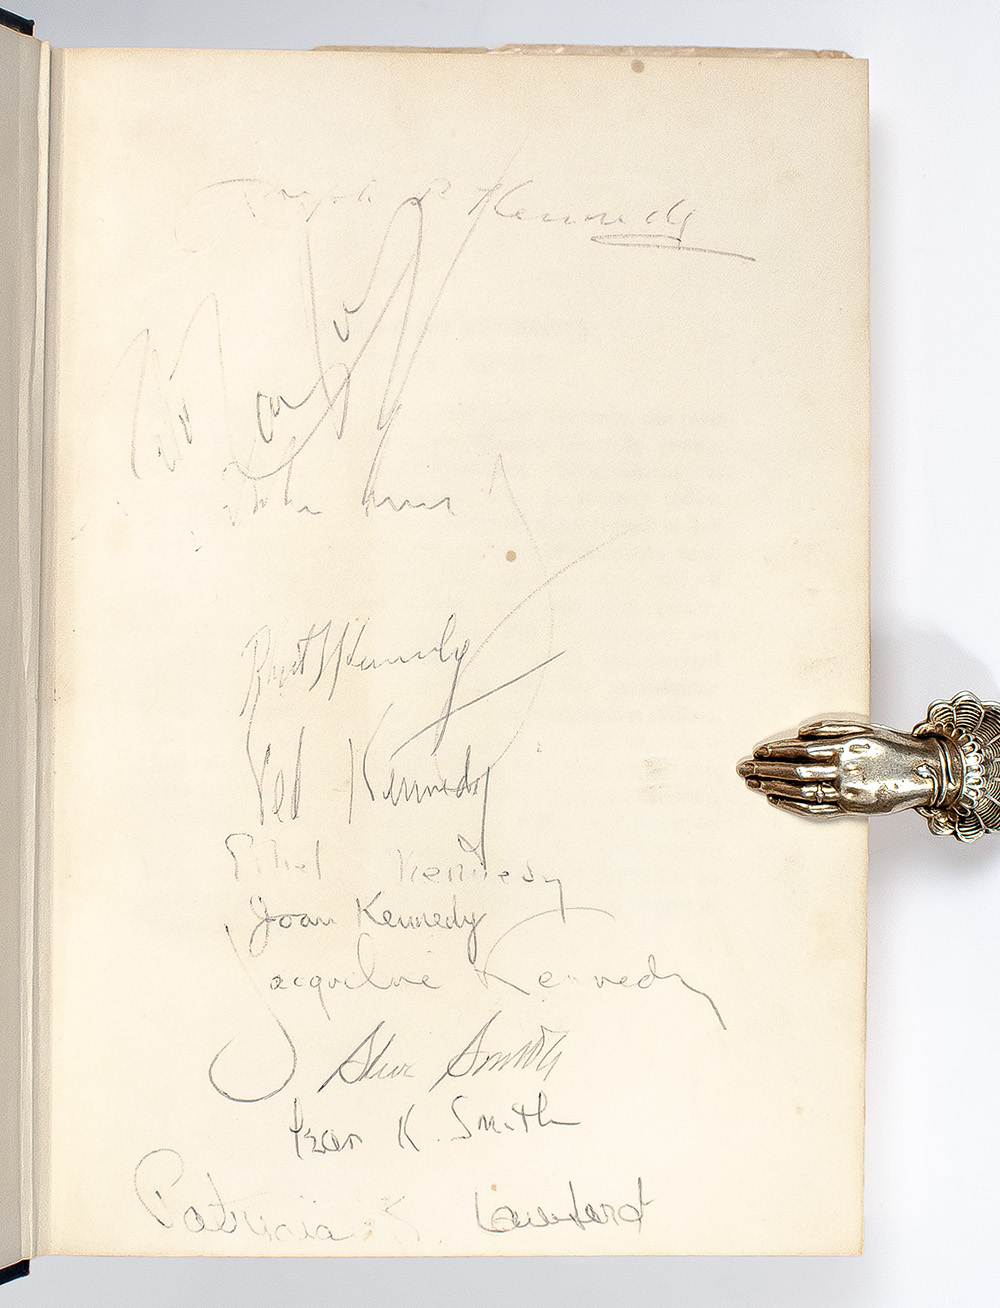 Joseph P Kennedy
John Kennedy
Robert F Kennedy
Ted Kennedy
Ethel Kennedy
Joan Kennedy
Jacqueline Kennedy
Steve Smith
Jean K. Smith
Patricia K. Lawford